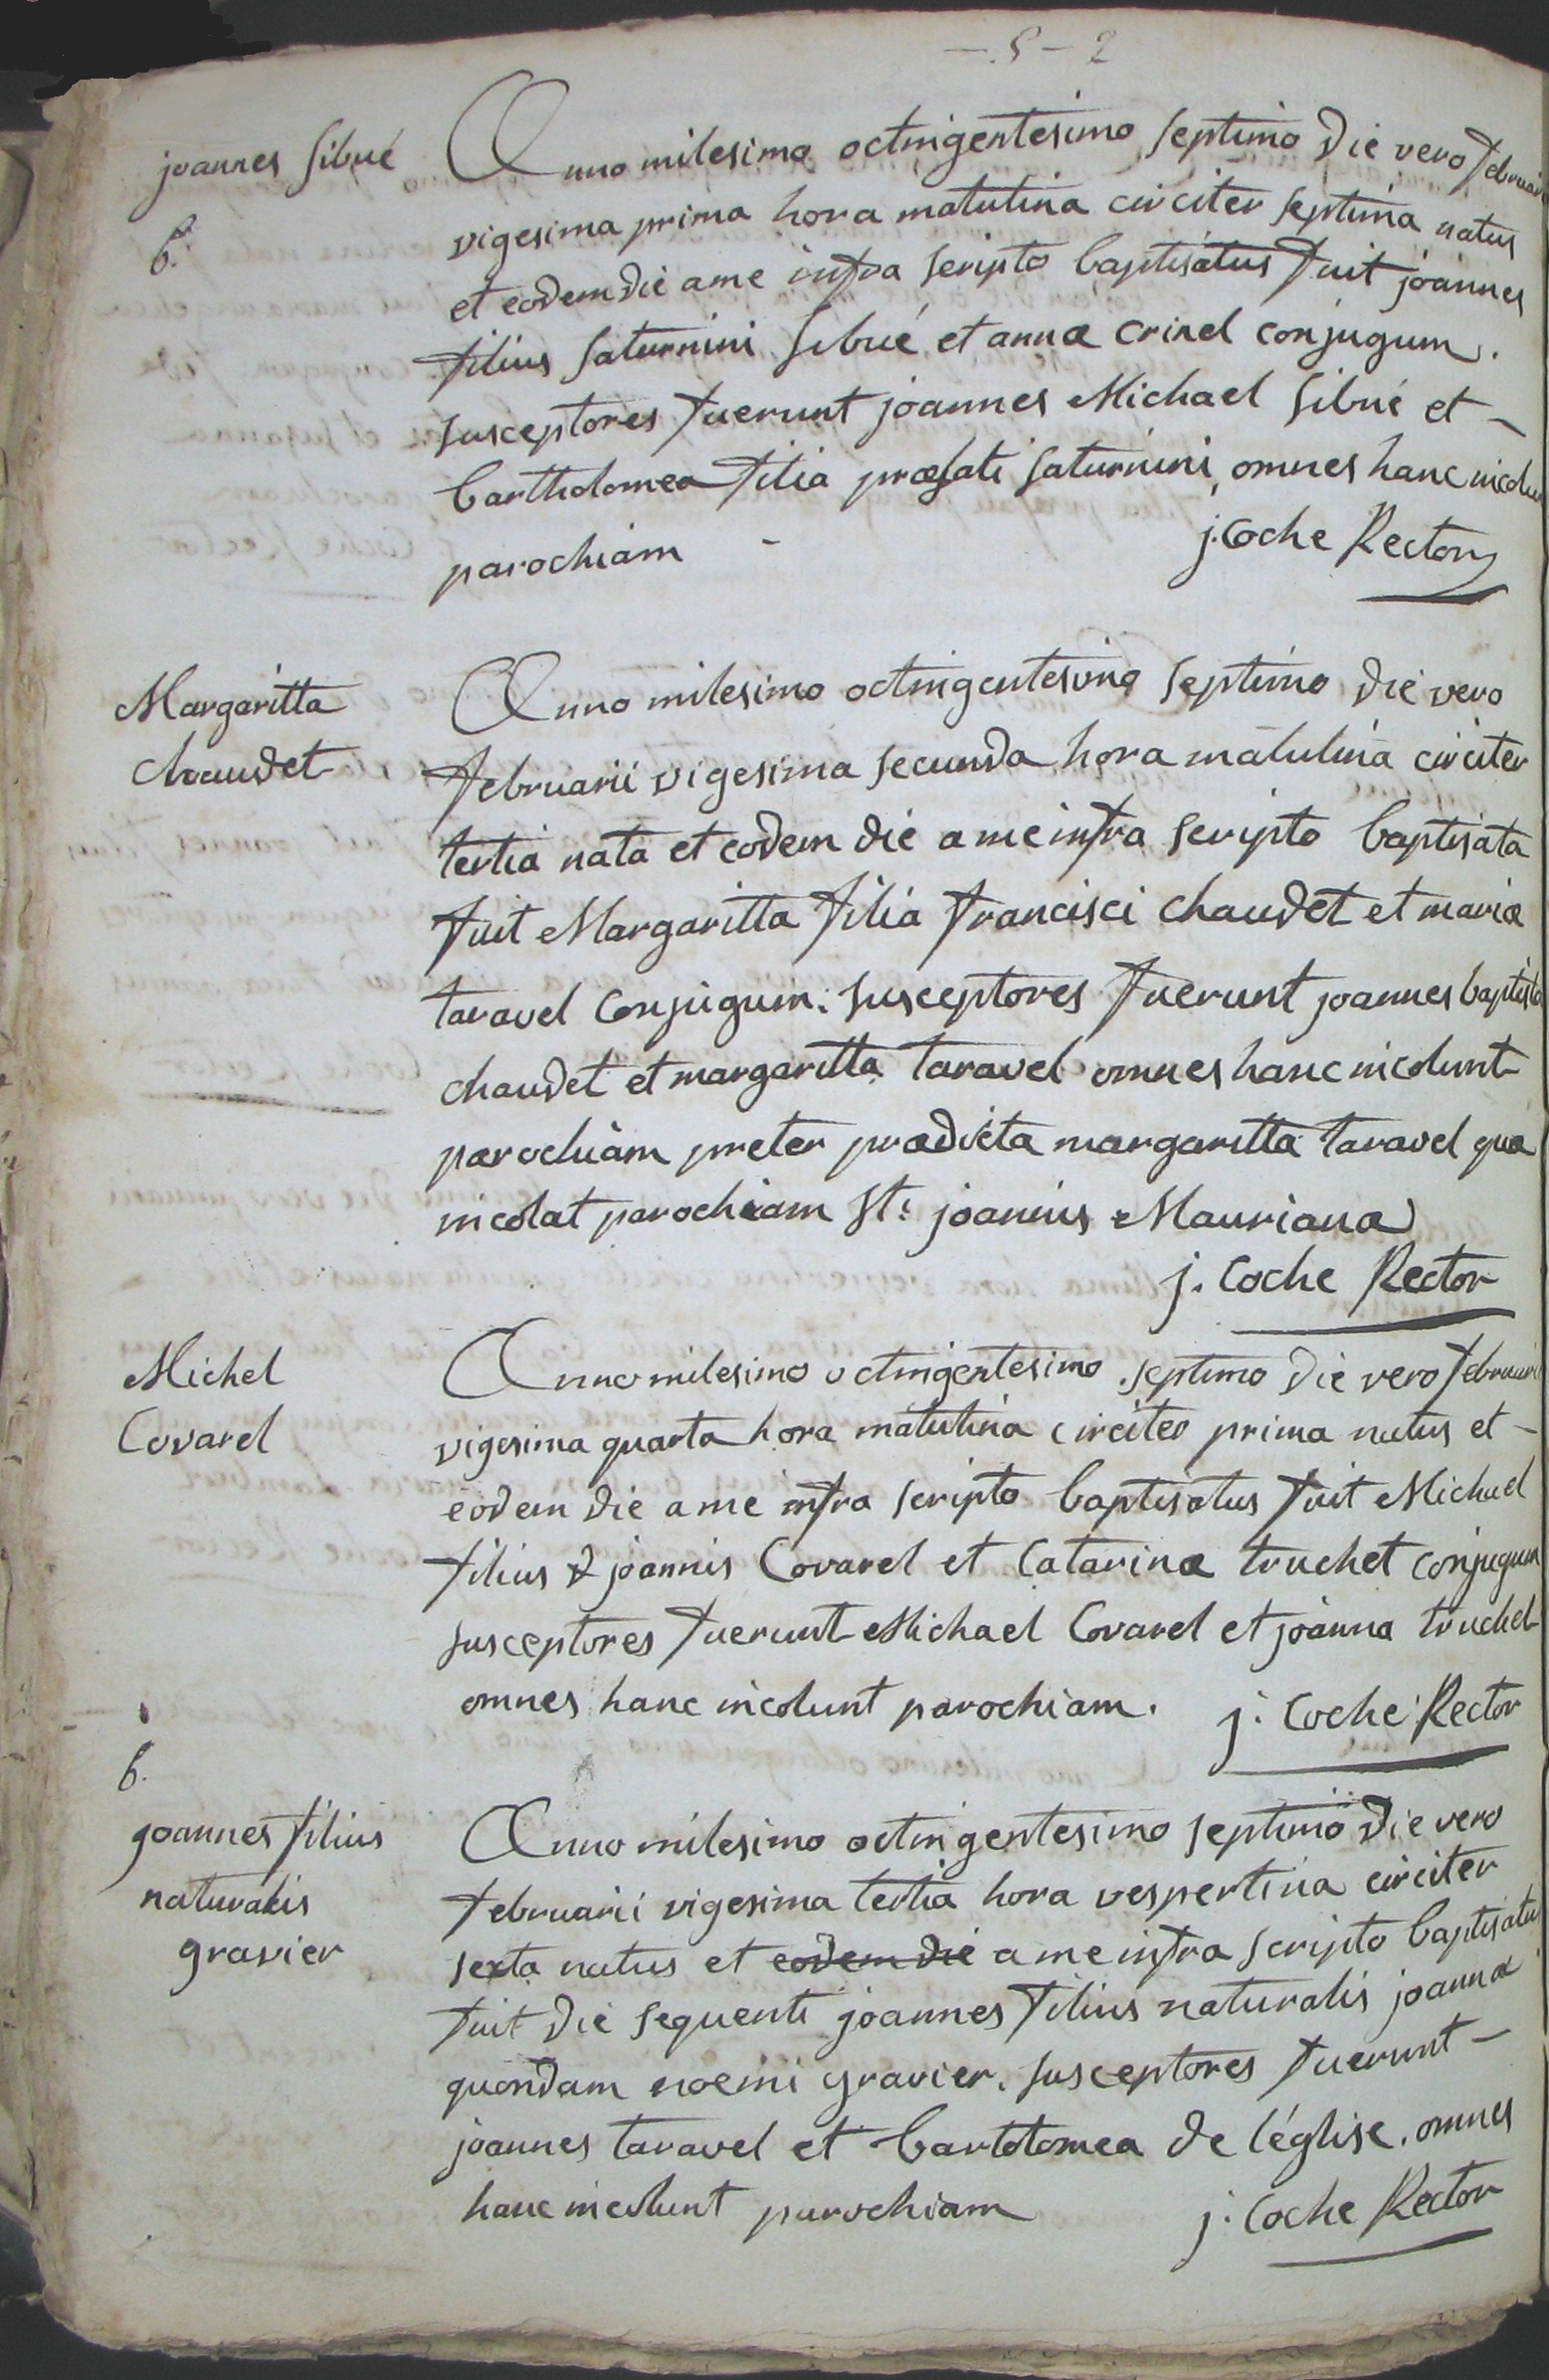 joannes Sibué
6.
Anno milesimo octingentesimo septimo die vero februarii
vigesima prima hora matutina circiter septima natus
et eodem die a me infra scripto baptisatus fuit joannes
filius Saturnini Sibué et annæ crinel conjugum.
susceptores fuerunt joannes Michael Sibué et -
bartholomea filia præfati Saturnini, omnes hanc incolunt
parochiam -
j. Coche Rector
Margaritta
chaudet
Anno milesimo octingentesimo septimo die vero
februarii vigesima secunda hora matutina circiter
tertia nata et eodem die a me infra scripto baptisata
fuit Margaritta filia francisci chaudet et mariæ
taravel conjugum. susceptores fuerunt joannes baptista
chaudet et margaritta taravel omnes hanc incolunt
parochiam preter prædicta margaritta taravel quæ
incolat parochiam Sti joannis Mauriana
j. Coche Rector
Michel
Covarel
Anno milesimo octingentesimo septimo die vero februarii
vigesima quarta hora matutina circiter prima natus et -
eodem die a me infra scripto baptisatus fuit Michael
filius joannis Covarel et Catarinæ truchet conjugum
susceptores fuerunt Michael Covarel et joanna truchet
omnes hanc incolunt parochiam.
j. Coche Rector
6.
joannes filius
naturalis
gravier
Anno milesimo octingentesimo septimo die vero
februarii vigesima tertia hora vespertina circiter
sexta natus et eodem die a me infra scripto baptisatus
fuit die sequenti joannes filius naturalis joannæ
quondam noemi gravier. susceptores fuerunt -
joannes taravel et bartolomea de l'église. omnes
hanc incolunt parochiam
j. Coche Rector